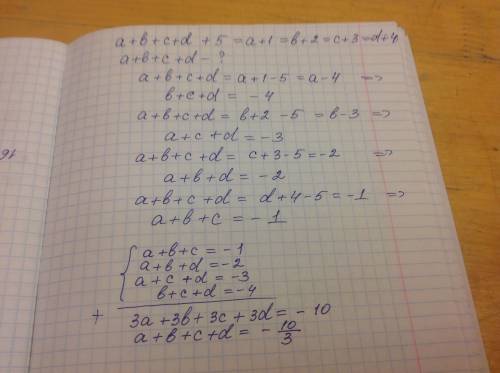 a+b+c+d+5=a+1=b+2=c+3=d+4
a+b+c+d-?
a+b+c+d=a+1-5=a-4 =>
b+c+d=-4
a+b+c+d=b+2-5=b-3 =>
a+c+d=-3
a+b+c+d=c+3-5=-2 =>
a+b+d=-2
a+b+c+d=d+4-5=-1 =>
a+b+c=-1
{a+b+c=-1
a+b+d=-2
a+c+d=-3
b+c+d=-4
+ 3a+3b+3c+3d=-10
a+b+c+d=-10/3